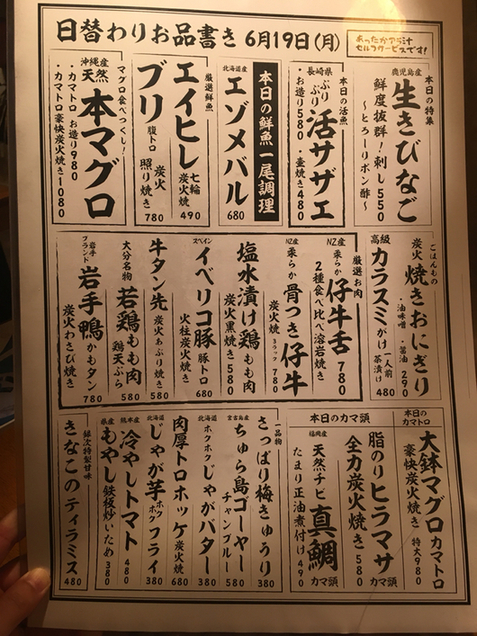 日替わりお品書き 6月19日(月)
あったかアラ汁
セルフサービスです!
本日の特集
鹿児島産
生きびなご
鮮度抜群!刺し 550
~とろーりポン酢~
本日の活魚
長崎県
ぷりぷり
活サザエ
・お造り 580 ・壺焼き 480
本日の鮮魚一尾調理
北海道産
エゾメバル
680
厳選鮮魚
エイヒレ
七輪炭火焼 490
ブリ
腹トロ
炭火照り焼き 780
マグロ食べつくし!
沖縄産
天然
本マグロ
・カマトロ お造り 980
・カマトロ 豪快炭火焼き 1080
ごはんもの
炭火
焼きおにぎり
・油味噌 ・醤油 290
高級
カラスミがけ
一人前 茶漬け 480
厳選お肉
NZ産
柔らか
仔牛舌
2種食べ比べ溶岩焼き 780
NZ産
柔らか
骨つき仔牛
炭火焼 1ラック 780
塩水漬け鶏もも肉
炭火黒焼き 580
スペイン
イベリコ豚
豚トロ
火柱炭火焼 680
牛タン先
炭火あぶり焼き 580
大分名物
若鶏もも肉
鶏天ぷら 580
岩手ブランド
岩手鴨
かもタン
炭火わさび焼き 780
本日のカマトロ
大鉢マグロ
カマトロ
豪快炭火焼き 特大 980
本日のカマ頭
脂のりヒラマサ
カマ頭
全力炭火焼き 580
福岡産
天然チビ真鯛
カマ頭
たまり正油煮付け 490
一品物
さっぱり梅きゅうり 380
宮古島産
ちゅら島ゴーヤー
チャンプルー 580
北海道
ホクホク
じゃがバター 380
肉厚トロホッケ
炭火焼 680
北海道
じゃが芋
ホクホク
フライ 380
熊本産
冷やしトマト 480
県産
もやし
鉄板炒いため 380
特製甘味
きなこのティラミス 480